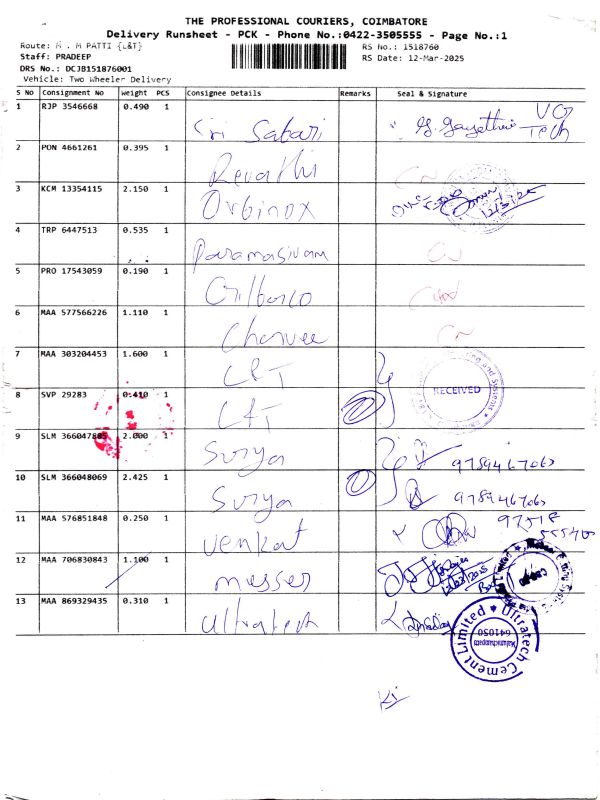 THE PROFESSIONAL COURIERS, COIMBATORE
Delivery Runsheet - PCK - Phone No.:0422-3505555 - Page No.:1
Route: M . M PATTI {L&T}
RS No.: 1518760
Staff: PRADEEP
RS Date: 12-Mar-2025
DRS No.: DCJB151876001
Vehicle: Two Wheeler Delivery
S NO Consignment No Weight PCS Consignee Details Remarks Seal & Signature
1 RJP 3546668 0.490 1 Sri Sabari
2 PON 4661261 0.395 1 Revathi
3 KCM 13354115 2.150 1 Orbinox
4 TRP 6447513 0.535 1 Paramasivam
5 PRO 17543059 0.190 1
6 MAA 577566226 1.110 1
7 MAA 303204453 1.600 1
RECEIVED
8 SVP 29283 0.410 1 L&T
9 SLM 366047885 2.000 1 Surya 9789467063
10 SLM 366048069 2.425 1 Surya 9789467063
11 MAA 576851848 0.250 1 Venkat
12 MAA 706830843 1.100 1 messer
13 MAA 869329435 0.310 1 Ultratech
Ultratech Cement Limited
641050